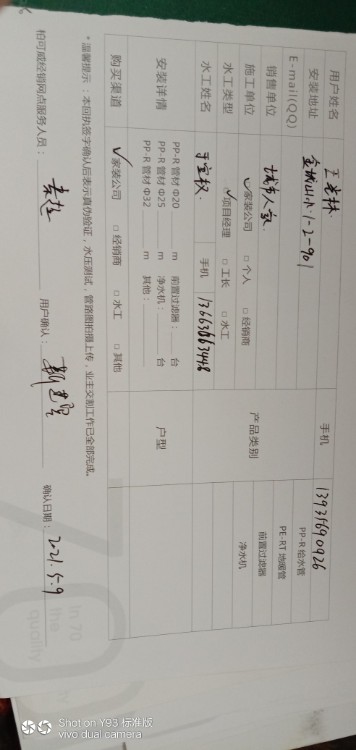 用户姓名 王 林 手机 13931690926
安装地址 1-2-901
E-mail(QQ)
销售单位 城市人家 产品类别 PP-R 给水管
PE-RT 地暖管
前置过滤器
净水机
施工单位 ✓家装公司 □ 个人 □ 经销商
水工类型 ✓项目经理 □ 工长 □ 水工
水工姓名 手机 13663663448
安装详情 PP-R 管材 Φ20 m 前置过滤器： 台 户型
PP-R 管材 Φ25 m 净水机： 台
PP-R 管材 Φ32 m 其他：
购买渠道 ✓家装公司 □ 经销商 □ 水工 □ 其他
* 温馨提示：本回执签字确认后表示真伪验证，水压测试，管路图拍摄上传，业主交割工作已全部完成。
柏可威经销网点服务人员： 用户确认： 确认日期： 2021.5.9
in 70
the
quality
Shot on Y93 标准版
vivo dual camera